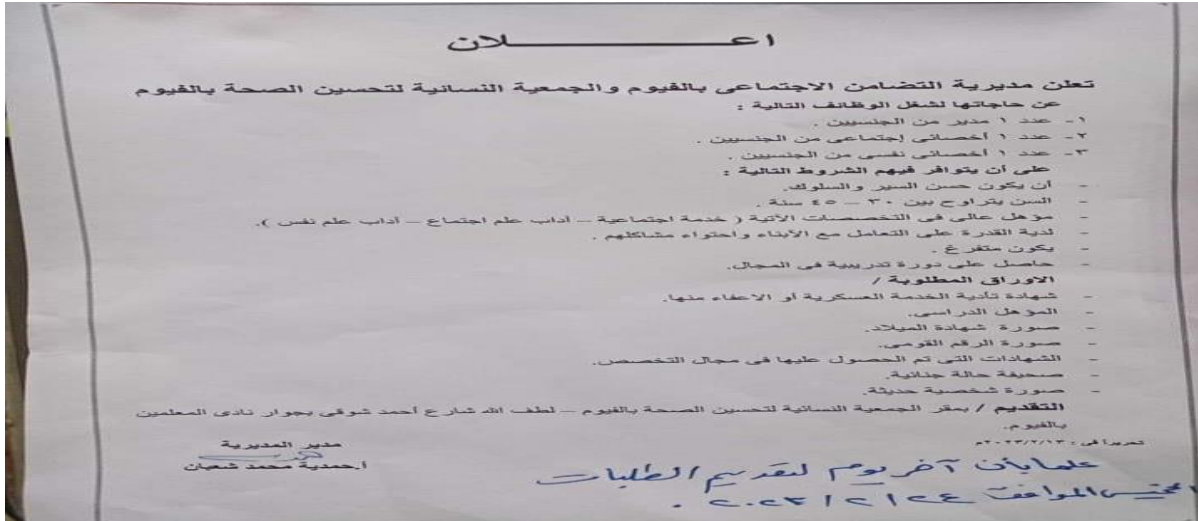 اعـــــــــــــلان
تعلن مديرية التضامن الاجتماعى بالفيوم والجمعية النسائية لتحسين الصحة بالفيوم
عن حاجاتها لشغل الوظائف التالية :
١- عدد ١ مدير من الجنسيين .
٢- عدد ١ أخصائى إجتماعى من الجنسيين .
٣- عدد ١ أخصائى نفسى من الجنسيين .
على أن يتوافر فيهم الشروط التالية :
- أن يكون حسن السير والسلوك.
- السن يتراوح بين ٣٠ – ٤٥ سنة .
- مؤهل عالى فى التخصصات الآتية ( خدمة اجتماعية – آداب علم اجتماع – آداب علم نفس ).
- لدية القدرة على التعامل مع الأبناء واحتواء مشاكلهم .
- يكون متفرغ .
- حاصل على دورة تدريبية فى المجال.
الاوراق المطلوبة /
- شهادة تأدية الخدمة العسكرية أو الاعفاء منها.
- المؤهل الدراسى.
- صورة شهادة الميلاد.
- صورة الرقم القومى.
- الشهادات التى تم الحصول عليها فى مجال التخصص.
- صحيفة حالة جنائية.
- صورة شخصية حديثة.
التقديم / بمقر الجمعية النسائية لتحسين الصحة بالفيوم – لطف الله شارع أحمد شوقى بجوار نادى المعلمين
بالفيوم.
تحريرا فى : ٢٠٢٣/٢/١٣م
مدير المديرية
أ.حمدية محمد شعبان
علما بأن آخر يوم لتقديم الطلبات
الموافق ٢٠٢٣/٢/٢٤ .